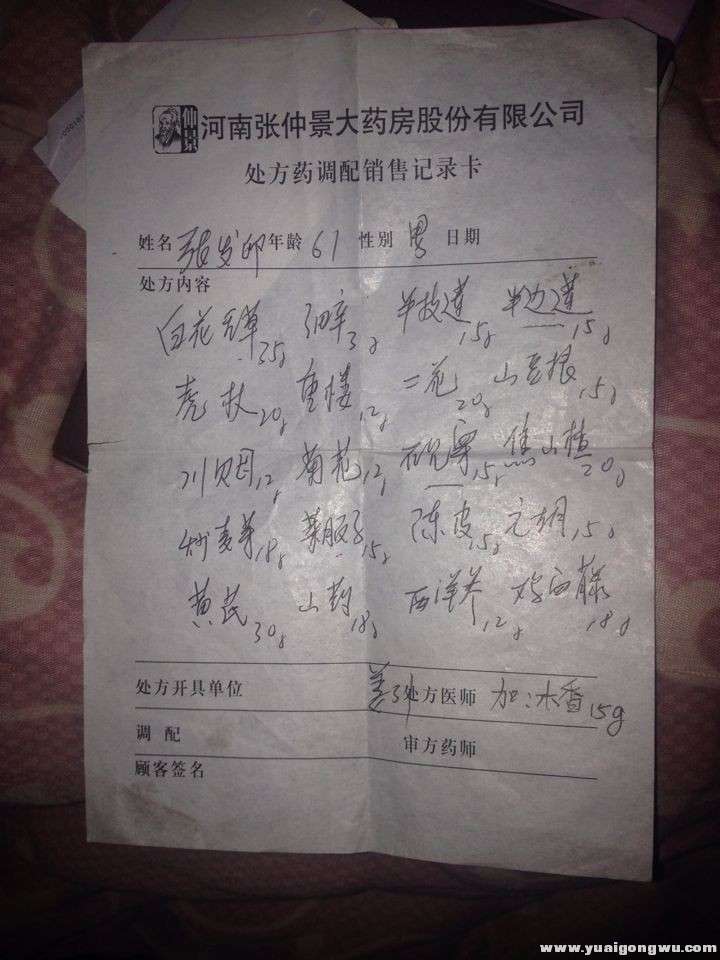 仲景 河南张仲景大药房股份有限公司
处方药调配销售记录卡
姓名 张发印 年龄 61 性别 男 日期
处方内容
白花 35g 细辛 3g 半枝莲 15g 半边莲 15g
虎杖 20g 重楼 12g 二花 20g 山豆根 15g
川贝母 12g 菊花 12g 15g 焦山楂 20g
炒麦芽 18g 莱服子 15g 陈皮 15g 元胡 15g
黄芪 30g 山药 18g 西洋参 12g 18g
处方开具单位 姜3片 处方医师 加:木香15g
调 配 审方药师
顾客签名
www.yuaigongwu.com